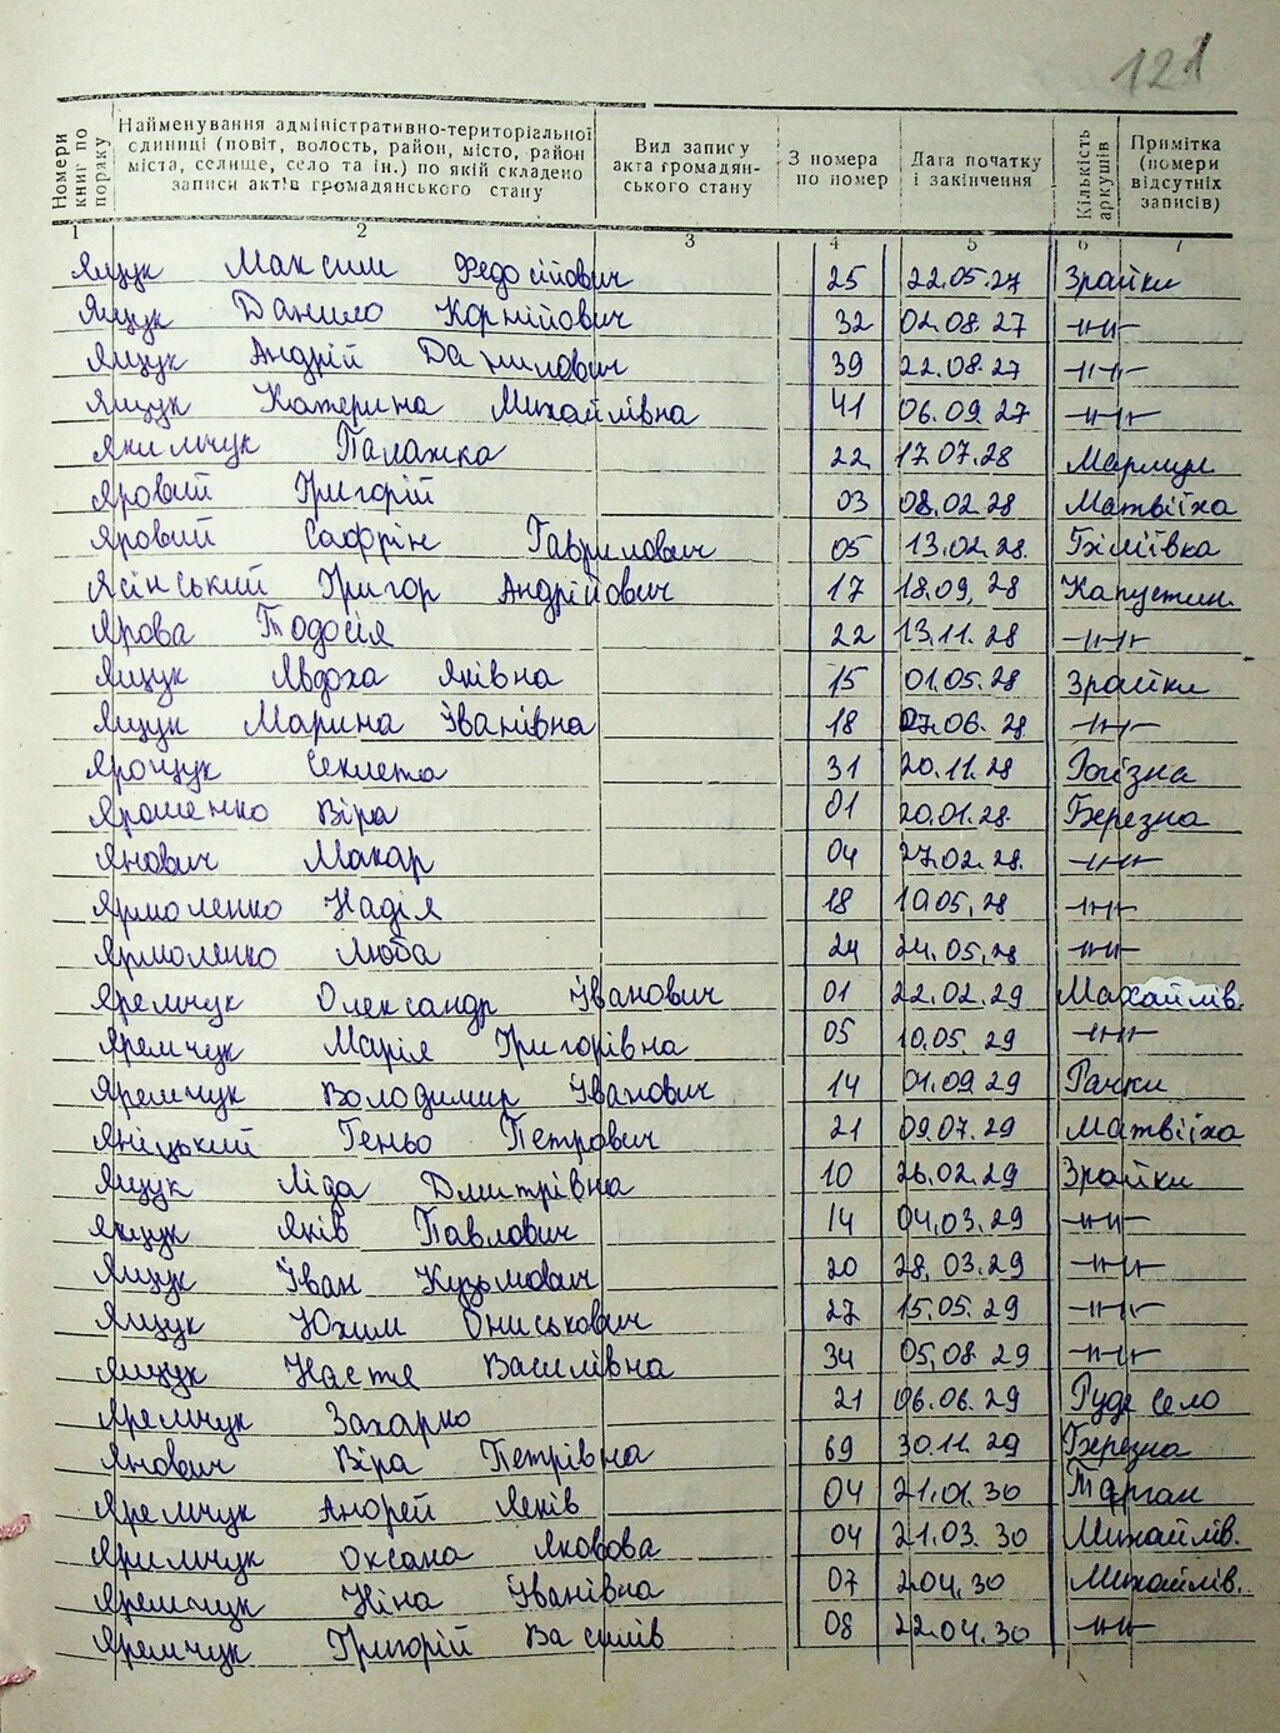 121
Номери книг по поряку
Найменування адміністративно-територіальної одиниці (повіт, волость, район, місто, район міста, селище, село та ін.) по якій складено записи актів громадянського стану
Вид запису акта громадян-ського стану
З номера по номер
Дата початку і закінчення
Кількість аркушів
Примітка (номери відсутніх записів)
1 2 3 4 5 6 7
Ящук Максим Федосійович 25 22.05.27 Зрайки
Ящук Данило Корнійович 32 02.08.27 -//-
Ящук Андрій Данилович 39 22.08.27 -//-
Ящук Катерина Михайлівна 41 06.09.27 -//-
Якимчук Палажка 22 17.07.28 Мармул.
Яровий Григорій 03 08.02.28 Матвіїха
Яровий Сафрін Гаврилович 05 13.02.28
Ясінський Григор Андрійович 17 18.09.28 Капустин.
Ярова Тодосія 22 13.11.28 -//-
Ящук Явдоха Яківна 15 01.05.28 Зрайки
Ящук Марина Іванівна 18 07.06.28 -//-
Ярощук Секлета 31 20.11.28 Рогізна
Ярошенко Віра 01 20.01.28 Березна
Янович Макар 04 27.02.28 -//-
Ярмоленко Надія 18 10.05.28 -//-
Ярмоленко Люба 24 24.05.28 -//-
Яремчук Олександр Іванович 01 22.02.29 Махайлів.
Яремчук Марія Григорівна 05 10.05.29 -//-
Яремчук Володимир Іванович 14 01.09.29 Рачки
Яніцький Геньо Петрович 21 09.07.29 Матвіїха
Ящук Ліда Дмитрівна 10 26.02.29 Зрайки
Ящук Яків Павлович 14 04.03.29 -//-
Ящук Іван Кузьмович 20 28.03.29 -//-
Ящук Юхим Ониськович 27 15.05.29 -//-
Ящук Настя Василівна 34 05.08.29 -//-
Яремчук Захарко 21 06.06.29 Руде село
Янович Віра Петрівна 69 30.11.29 Березна
Яремчук Андрей Яків 04 21.01.30 Тарган
Яримчук Оксана Яковова 04 21.03.30 Михайлів.
Яремчук Ніна Іванівна 07 2.04.30 Михайлів.
Яремчук Григорій Василів 08 22.04.30 -//-